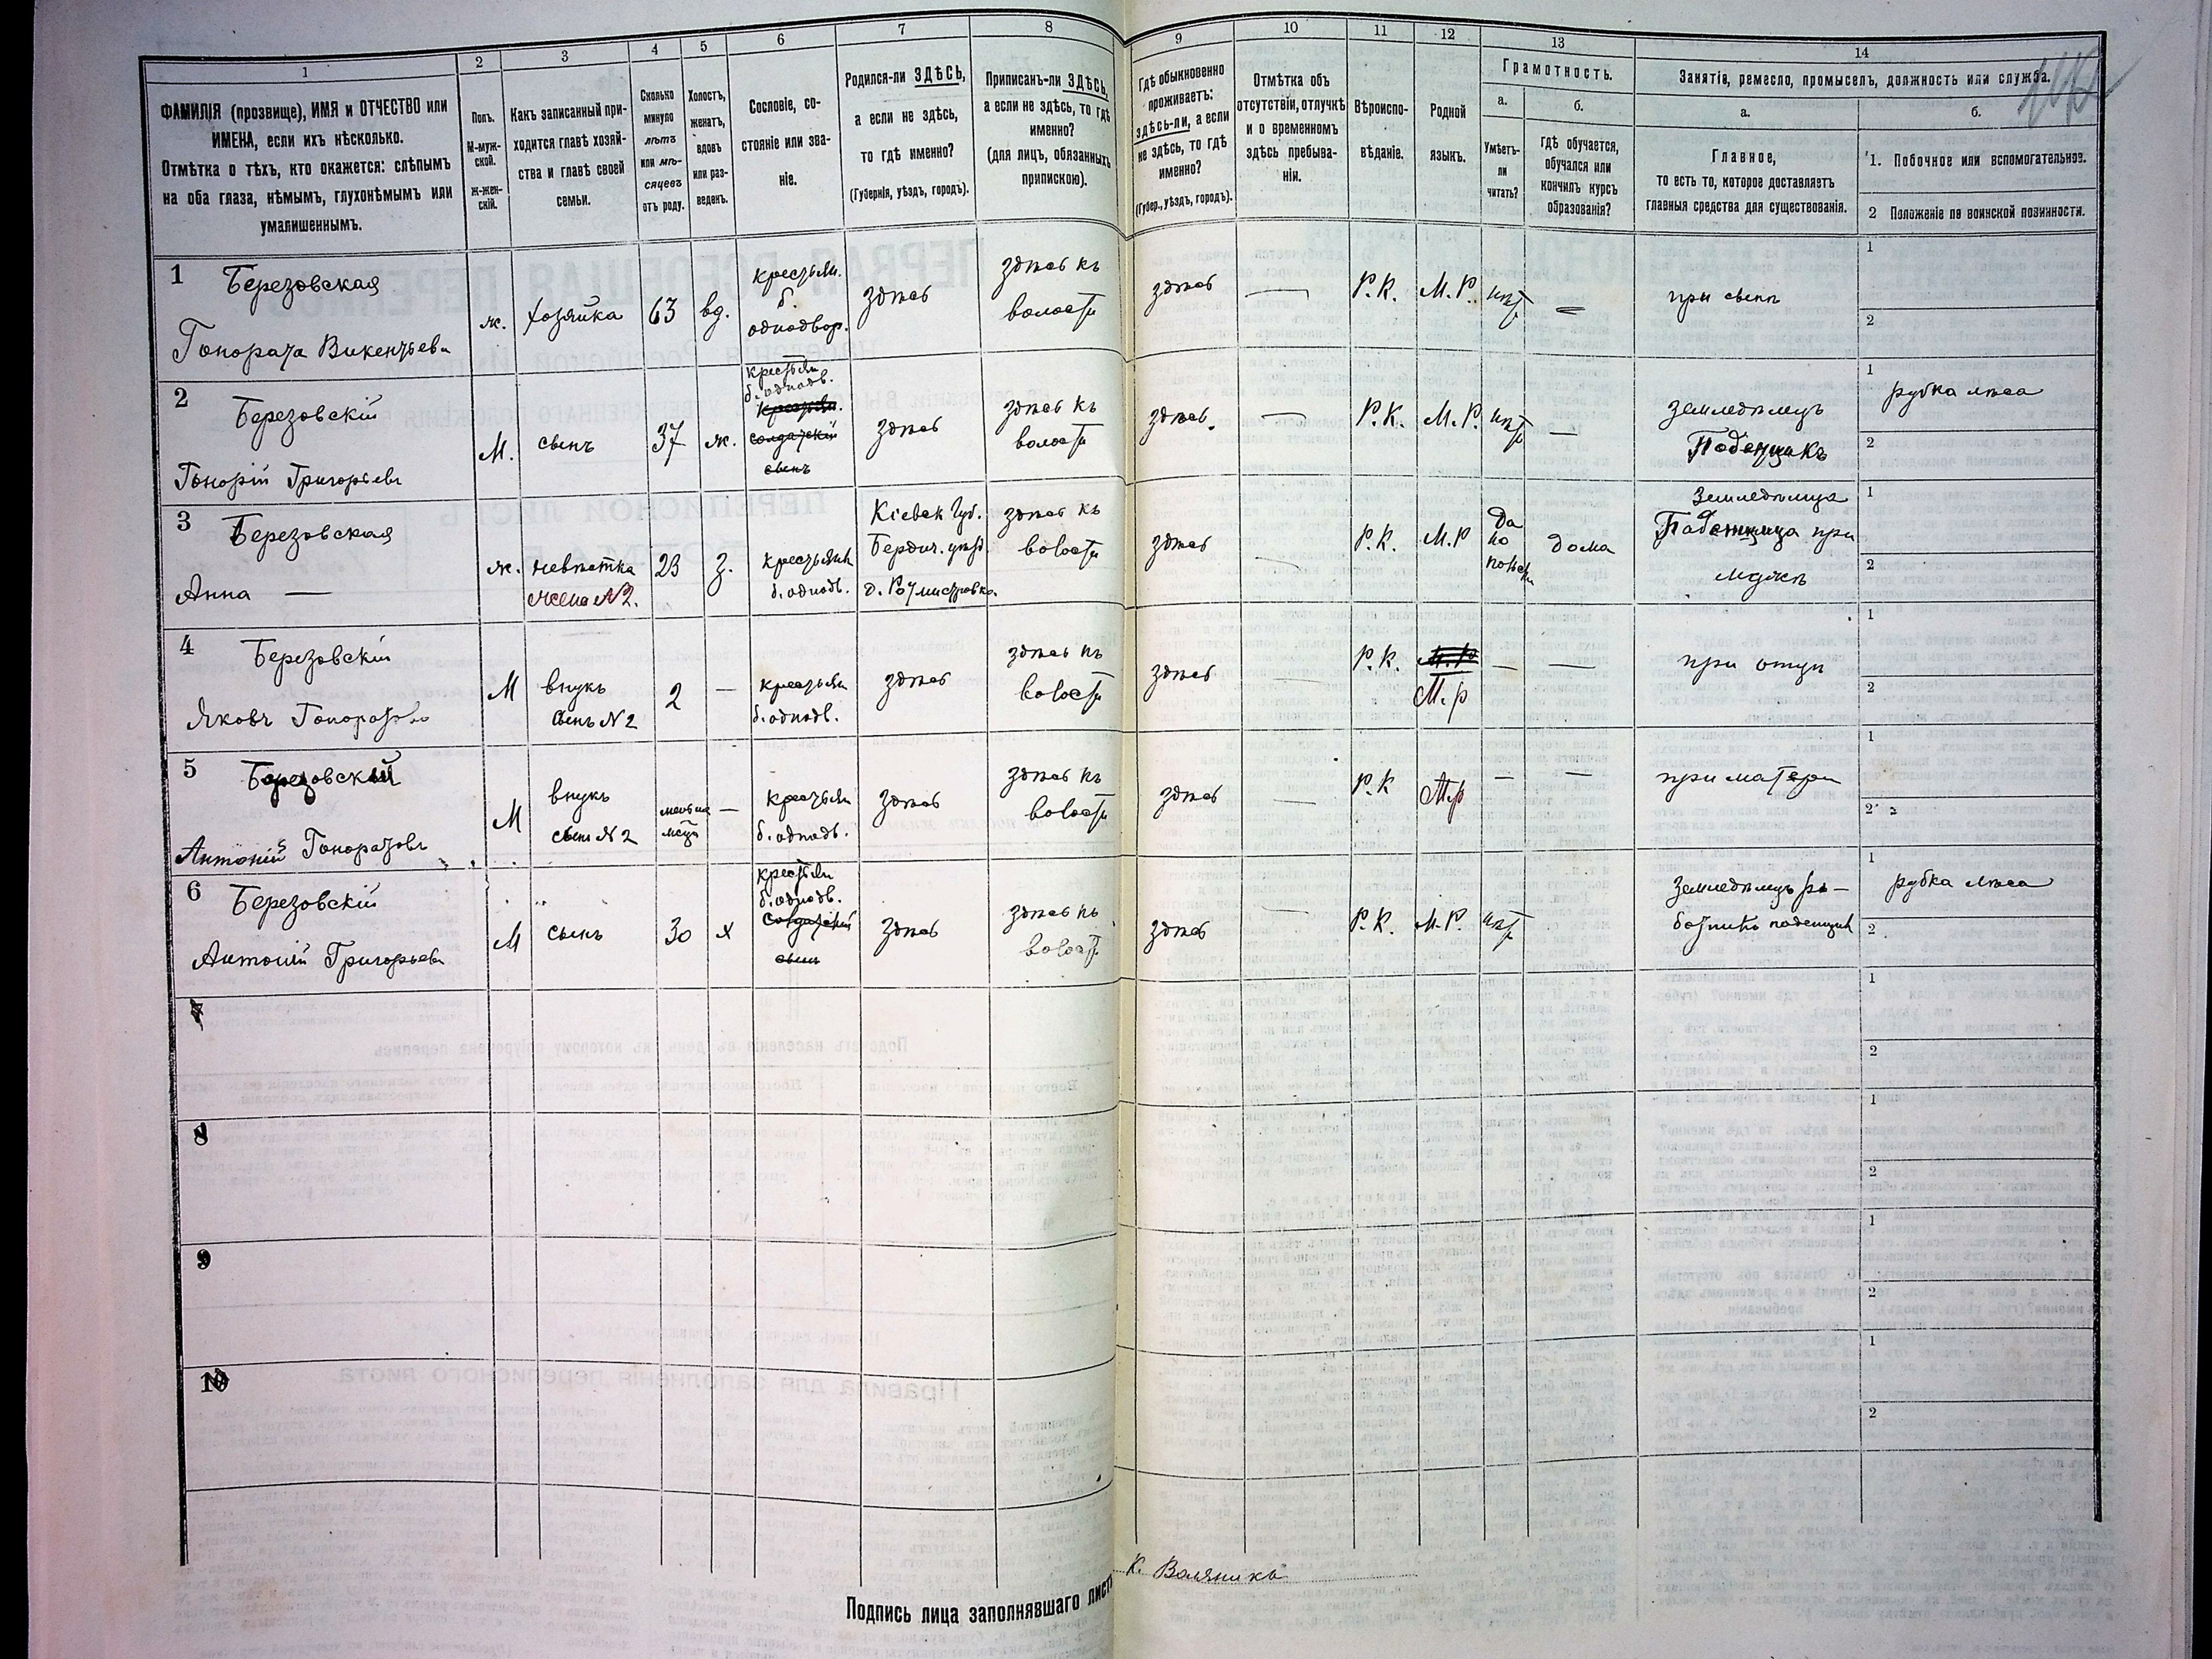 1
2
3
4
5
6
7
8
9
10
11
12
13
14
ФАМИЛІЯ (прозвище), ИМЯ и ОТЧЕСТВО или
ИМЕНА, если ихъ нѣсколько.
Отмѣтка о тѣхъ, кто окажется: слѣпымъ
на оба глаза, нѣмымъ, глухонѣмымъ или
умалишеннымъ.
Полъ.
М-муж-
ской.
Ж-жен-
скій.
Какъ записанный при-
ходится главѣ хозяй-
ства и главѣ своей
семьи.
Сколько
минуло
лѣтъ
или мѣ-
сяцевъ
отъ роду.
Холостъ,
женатъ,
вдовъ
или раз-
веденъ.
Сословіе, со-
стояніе или зва-
ніе.
Родился-ли ЗДѢСЬ,
а если не здѣсь,
то гдѣ именно?
(Губернія, уѣздъ, городъ).
Приписанъ-ли ЗДѢСЬ,
а если не здѣсь, то гдѣ
именно?
(для лицъ, обязанныхъ
припискою).
Гдѣ обыкновенно
проживаетъ:
здѣсь-ли, а если
не здѣсь, то гдѣ
именно?
(Губер., уѣздъ, городъ).
Отмѣтка объ
отсутствіи, отлучкѣ
и о временномъ
здѣсь пребыва-
ніи.
Вѣроиспо-
вѣданіе.
Родной
языкъ.
Грамотность.
а.
б.
Умѣетъ-
ли
читать?
Гдѣ обучается,
обучался или
кончилъ курсъ
образованія?
Занятіе, ремесло, промыселъ, должность или служба.
а.
б.
Главное,
то есть то, которое доставляетъ
главныя средства для существованія.
1. Побочное или вспомогательное.
2 Положеніе по воинской повинности.
1
Березовская
Гонората Викентьева
ж.
хозяйка
63
вд.
крестьян.
б.
однодвор.
здѣсь
здѣсь къ
волости
здѣсь
—
Р.К.
М.Р.
нѣт
—
при сынѣ
1
2
2
Березовскій
Гонорій Григорьевъ
М.
сынъ
37
ж.
крестьян
б. однодв.
крестьян.
солдатскій
сынъ
здѣсь
здѣсь къ
волости
здѣсь.
—
Р.К.
М.Р.
нѣт
—
земледѣлецъ
Поденщикъ
1
рубка лѣса
2
3
Березовская
Анна —
ж.
невѣстка
жена N2.
23
з.
крестьянк
б. однодв.
Кіевск Губ.
Бердич. уѣзд.
здѣсь къ
волости
здѣсь
—
Р.К.
М.Р
Да
по
польски
дома
Земледѣлица
Поденщица при
мужѣ
1
2
4
Березовскій
Яковъ Гоноратовъ
М
внукъ
сынъ N2
2
—
крестьян
б. однодв.
здѣсь
здѣсь къ
волости
здѣсь
—
Р.К.
М.Р
М.р
—
—
при отцѣ
1
2
5
Березовскій
Антоній Гоноратовъ
М
внукъ
сынъ N2
—
крестьян
б. однодв.
здѣсь
здѣсь къ
волости
здѣсь
—
Р.К
М.р
—
—
при матери
1
2
6
Березовскій
Антоній Григорьевъ
М
сынъ
30
х
крестьян
б. однодв.
солдатскій
сынъ
здѣсь
здѣсь къ
волости
здѣсь
—
Р.К.
М.Р.
нѣт
Земледѣлецъ ра-
ботникъ поденщик
1
рубка лѣса
2
7
1
2
8
1
2
9
1
2
10
1
2
Подпись лица заполнявшаго листъ